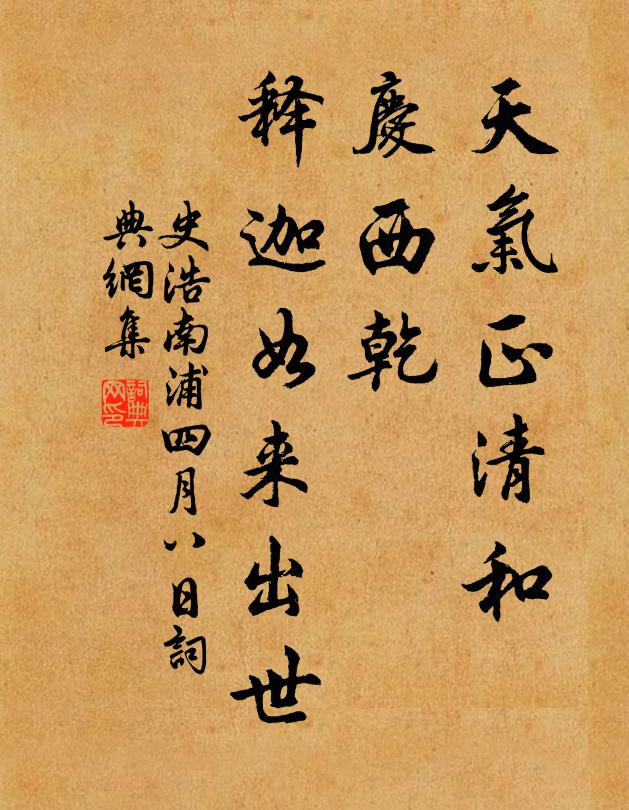 天氣正清和
慶西乾
释迦如来出世
史浩南浦四月八日詞
典網集
詞典
网印